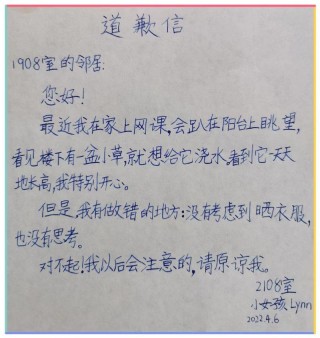 道歉信
1908室的邻居:
您好!
最近我在家上网课,会趴在阳台上眺望,
看见楼下有一盆小草,就想给它浇水.看到它一天天
地长高,我特别开心。
但是,我有做错的地方:没有考虑到晒衣服,
也没有思考。
对不起!我以后会注意的,请原谅我。
2108室
小女孩Lynn
2022.4.6